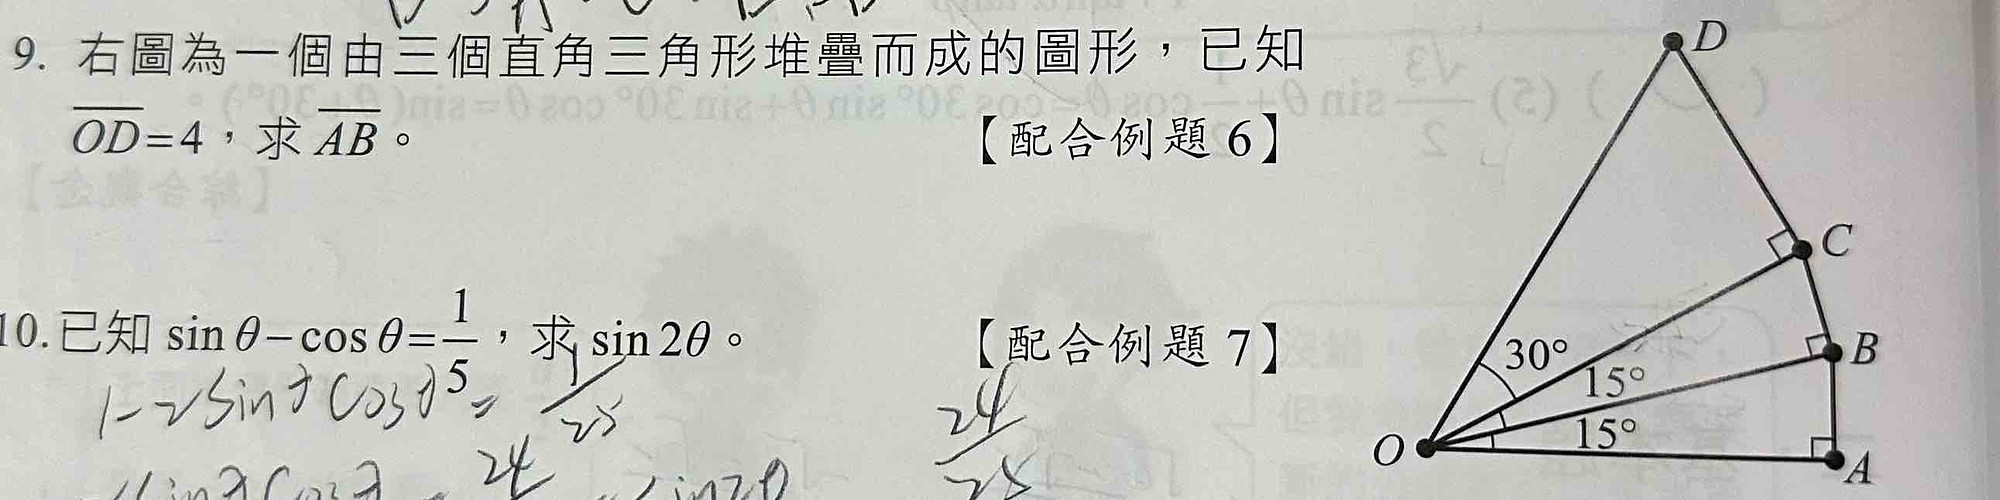 9. 右圖為一個由三個直角三角形堆疊而成的圖形，已知
OD=4，求 AB。
【配合例題 6】
10.已知 sin θ−cos θ=1/5，求 sin 2θ。
【配合例題 7】
1-2sinθcosθ=1/25
24/25
24
sin2θ
D
C
B
A
O
30°
15°
15°